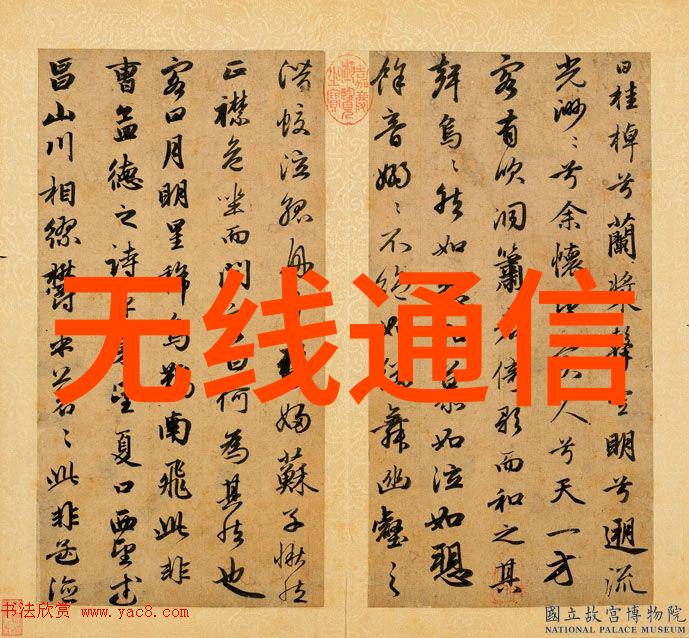 曰桂棹兮蘭槳擊空明兮遡流
光渺〻兮余懷人兮天一方
客有吹洞簫倚歌而和之其
聲烏〻然如如慕如泣如愬
餘音嫋〻不絕如舞幽壑之
潛蛟泣孤舟婦蘇子愀然
正襟危坐而問曰何為其然也
客曰月明星稀烏鵲南飛此非
曹孟德之詩乎望夏口西望武
昌山川相繆鬱乎蒼〻此非孟德
无线通信
书法欣赏 www.yac8.com
國立故宮博物院
NATIONAL PALACE MUSEUM